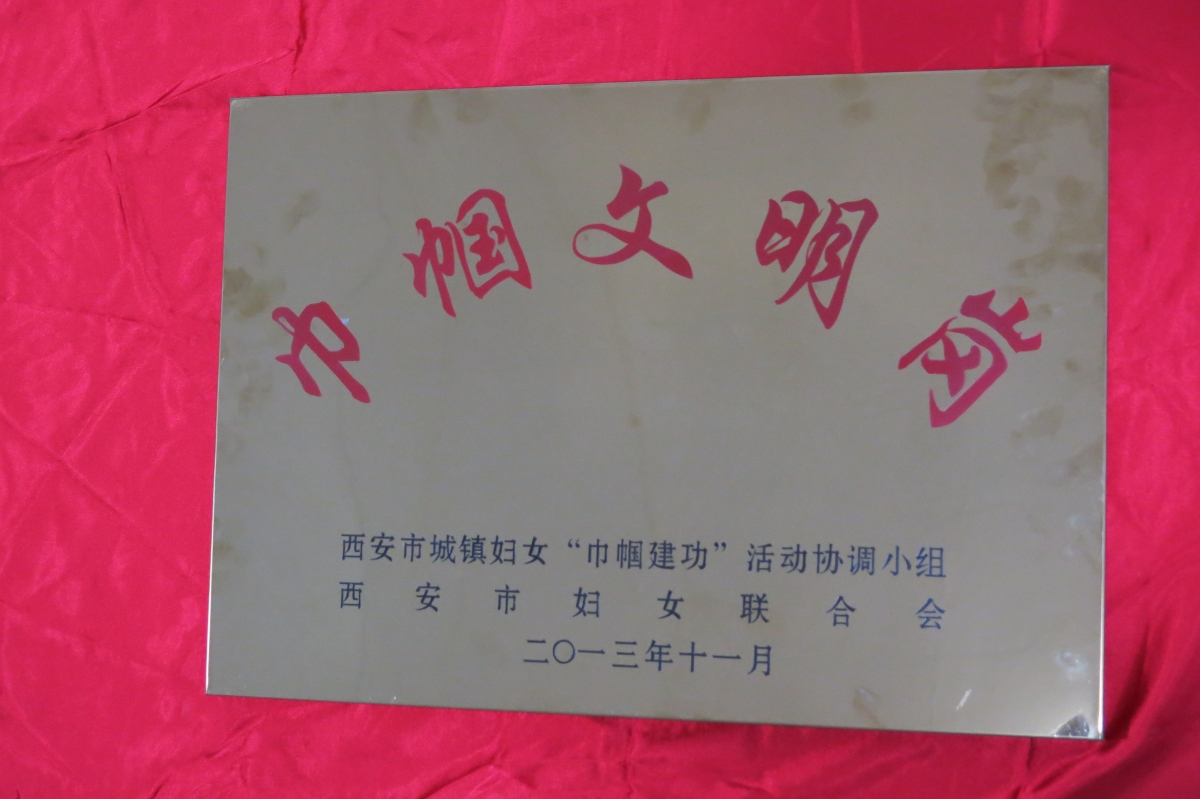 巾帼文明岗
西安市城镇妇女“巾帼建功”活动协调小组
西安市妇女联合会
二〇一三年十一月